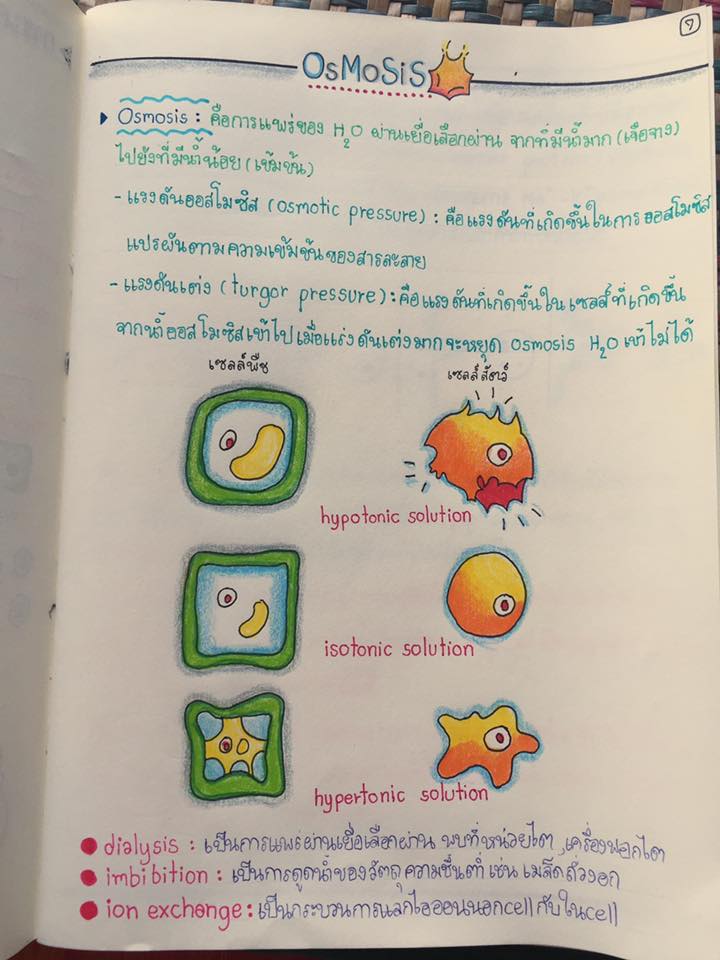 7
OsMoSiS
Osmosis : คือการแพร่ของ H₂O ผ่านเยื่อเลือกผ่าน จากที่มีน้ำมาก (เจือจาง)
ไปยังที่มีน้ำน้อย (เข้มข้น)
- แรงดันออสโมซิส (osmotic pressure) : คือแรงดันที่เกิดขึ้นในการออสโมซิส
แปรผันตามความเข้มข้นของสารละลาย
- แรงดันเต่ง (turgor pressure) : คือแรงดันที่เกิดขึ้นในเซลล์ที่เกิดขึ้น
จากน้ำออสโมซิสเข้าไปเมื่อแรงดันเต่งมากจะหยุด osmosis H₂O เข้าไม่ได้
เซลล์พืช เซลล์สัตว์
hypotonic solution
isotonic solution
hypertonic solution
dialysis : เป็นการแพร่ผ่านเยื่อเลือกผ่าน พบที่หน่วยไต , เครื่องฟอกไต
imbibition : เป็นการดูดน้ำของวัตถุความชื้นต่ำ เช่น เมล็ดถั่วงอก
ion exchange : เป็นกระบวนการแลกไอออนนอกcell กับในcell